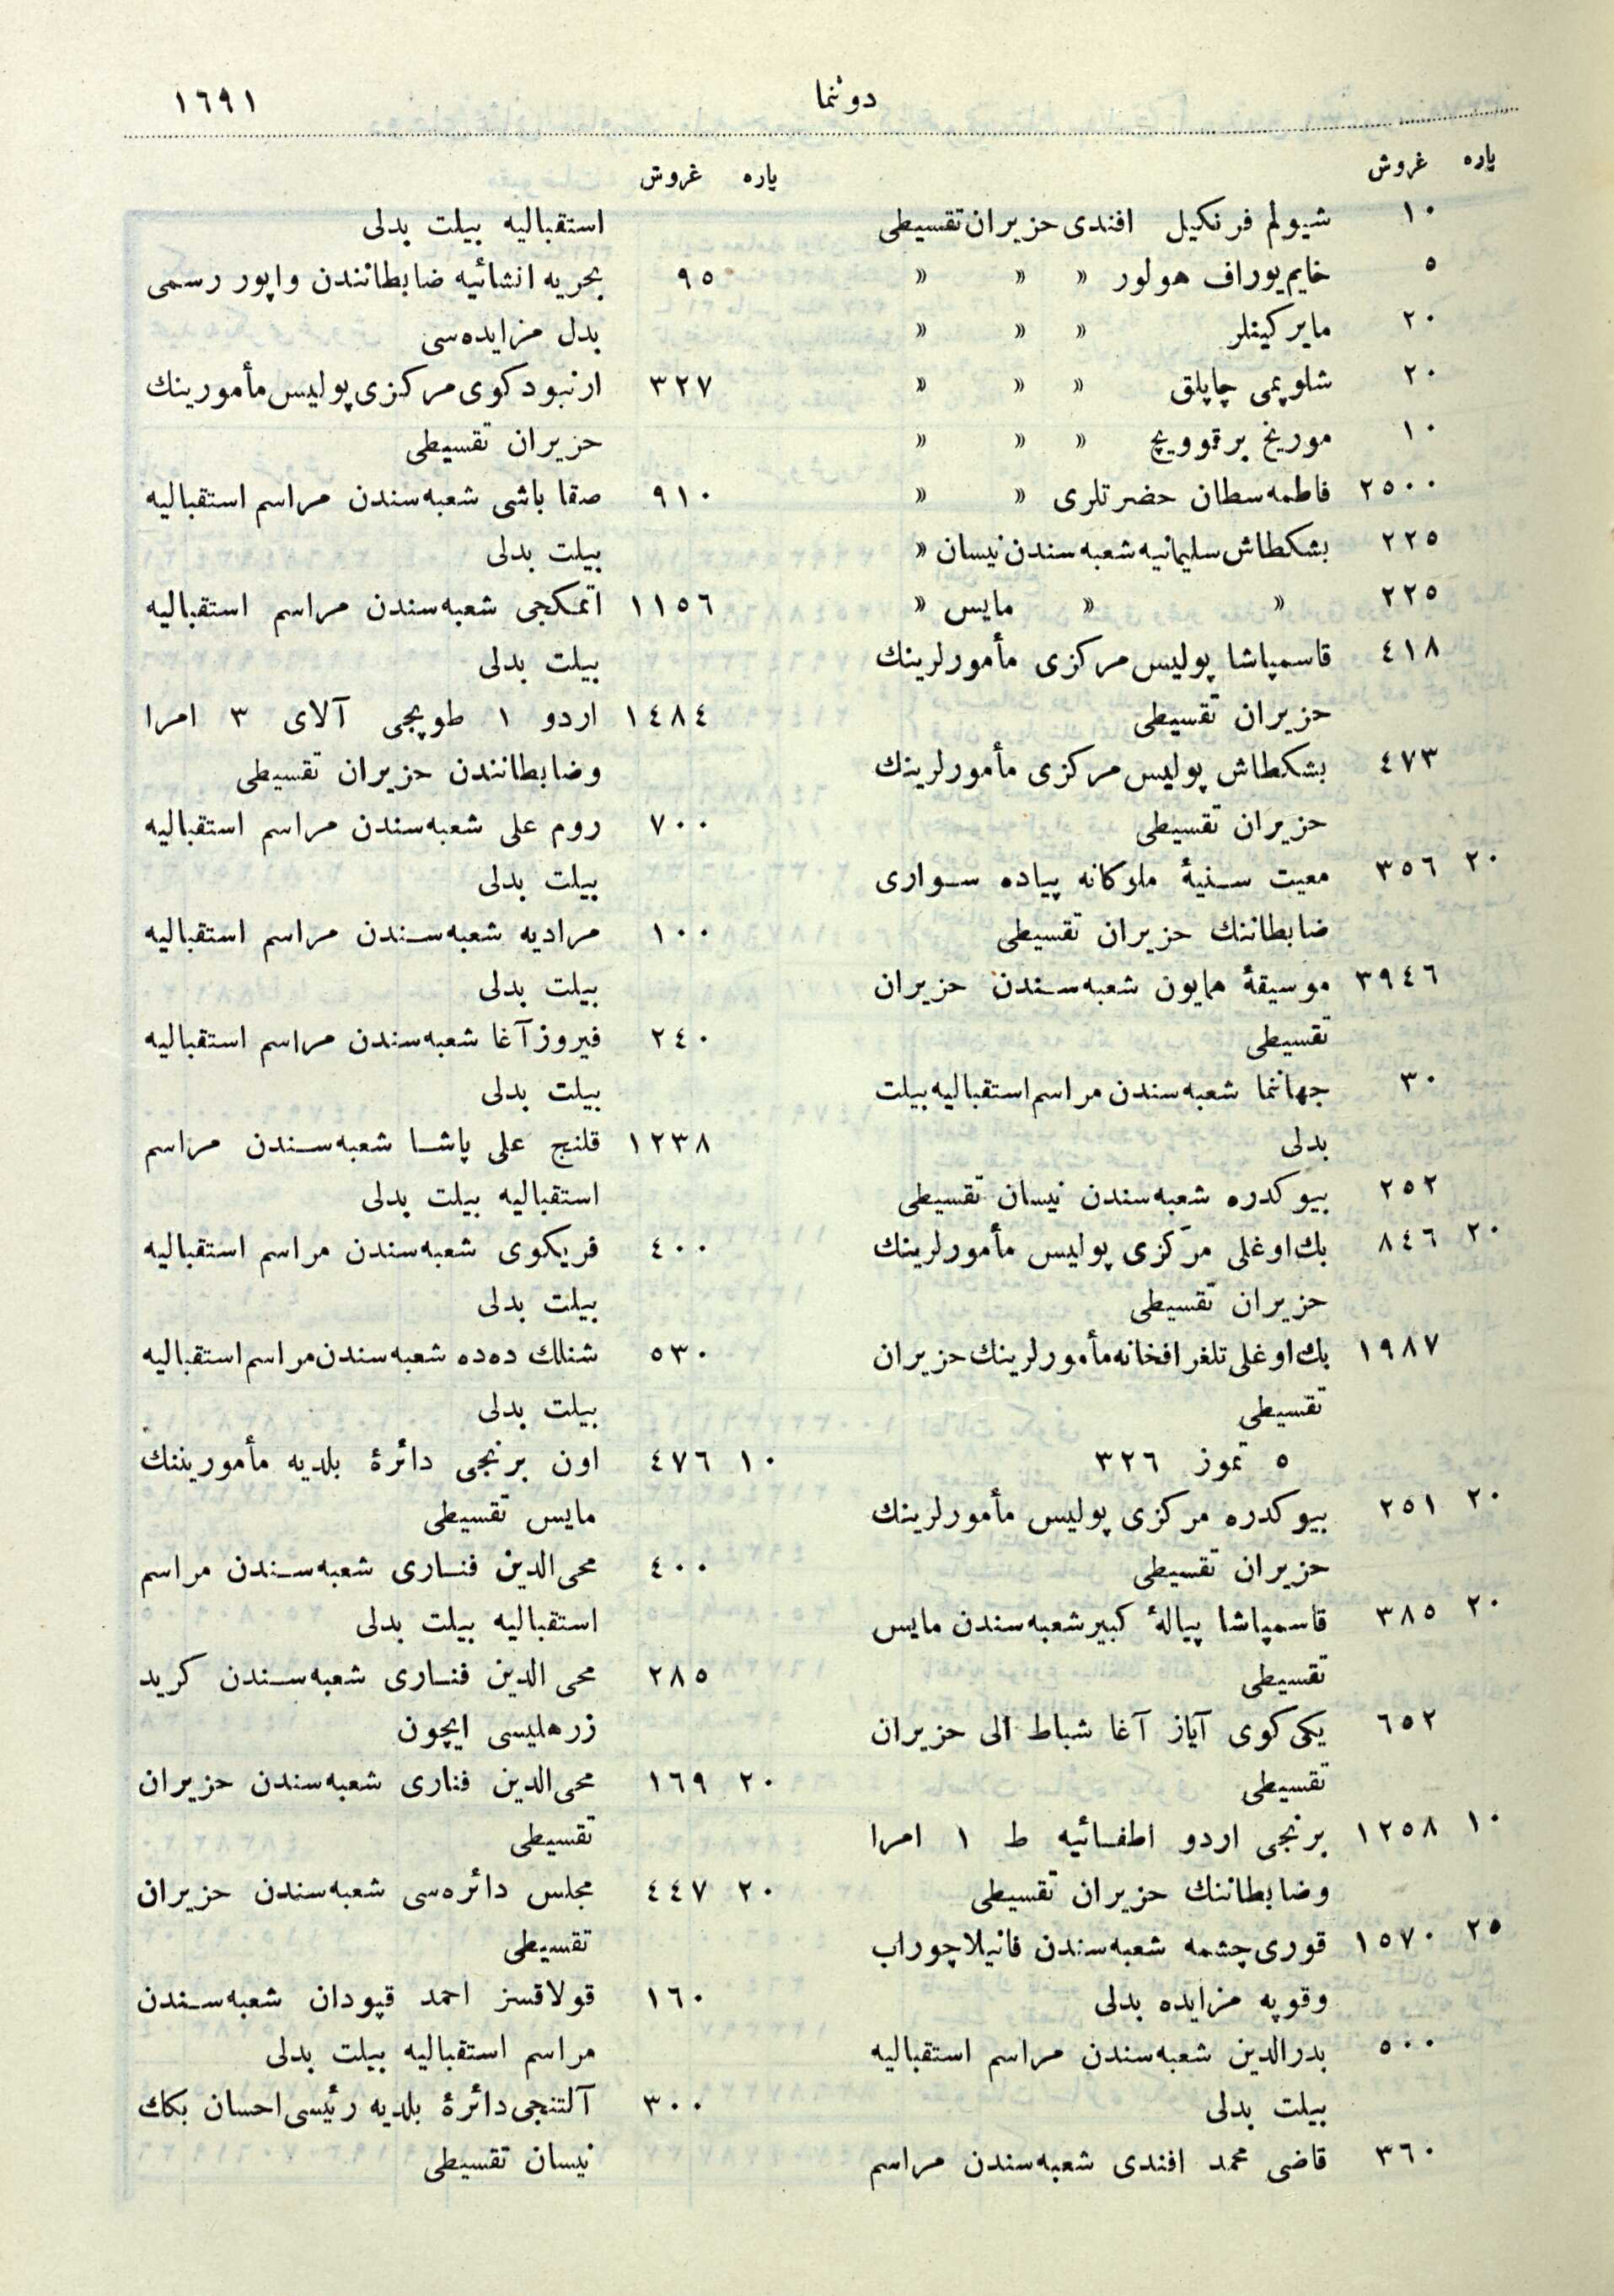 ١٦٩١ دوننما
پاره غروش
١٠ شيولم فرنكيل افندى حزيران تقسيطى
٥ خايم يوراف هولور » » »
٢٠ ماير كينلر » » »
٢٠ شلويمى چاپلق » » »
١٠ موريخ برقوويچ » » »
٢٥٠٠ فاطمه سطان حضرتلرى » »
٢٢٥ بشكطاش سليمانيه شعبه سندن نيسان »
٢٢٥ » » مايس »
٤١٨ قاسمپاشا پوليس مركزى مأمورلرينك
حزيران تقسيطى
٤٧٣ بشكطاش پوليس مركزى مأمورلرينك
حزيران تقسيطى
٢٠ ٣٥٦ معيت سنيهٔ ملوكانه پياده سوارى
ضابطاننك حزيران تقسيطى
٣٩٤٦ موسيقهٔ همايون شعبه سندن حزيران
تقسيطى
٣٠ جهاننما شعبه سندن مراسم استقباليه بيلت
بدلى
٢٥٢ بيوكدره شعبه سندن نيسان تقسيطى
٢٠ ٨٤٦ بك اوغلى مركزى پوليس مأمورلرينك
حزيران تقسيطى
١٩٨٧ بك اوغلى تلغرافخانه مأمورلرينك حزيران
تقسيطى
٥ تموز ٣٢٦
٢٠ ٢٥١ بيوكدره مركزى پوليس مأمورلرينك
حزيران تقسيطى
٢٠ ٣٨٥ قاسمپاشا پيالهٔ كبير شعبه سندن مايس
تقسيطى
٦٥٢ يكى كوى آياز آغا شباط الى حزيران
تقسيطى
١٠ ١٢٥٨ برنجى اردو اطفائيه ط ١ امرا
وضابطاننك حزيران تقسيطى
٢٥ ١٥٧٠ قورى چشمه شعبه سندن فانيلا چوراب
وقوپه مزايده بدلى
٥٠٠ بدرالدين شعبه سندن مراسم استقباليه
بيلت بدلى
٣٦٠ قاضى محمد افندى شعبه سندن مراسم
پاره غروش
استقباليه بيلت بدلى
٩٥ بحريه انشائيه ضابطانندن واپور رسمى
بدل مزايده سى
٣٢٧ ارنبودكوى مركزى پوليس مأمورينك
حزيران تقسيطى
٩١٠ صقا باشى شعبه سندن مراسم استقباليه
بيلت بدلى
١١٥٦ اتمكجى شعبه سندن مراسم استقباليه
بيلت بدلى
١٤٨٤ اردو ١ طوپجى آلاى ٣ امرا
وضابطانندن حزيران تقسيطى
٧٠٠ روم على شعبه سندن مراسم استقباليه
بيلت بدلى
١٠٠ مراديه شعبه سندن مراسم استقباليه
بيلت بدلى
٢٤٠ فيروز آغا شعبه سندن مراسم استقباليه
بيلت بدلى
١٢٣٨ قلنج على پاشا شعبه سندن مراسم
استقباليه بيلت بدلى
٤٠٠ فريكوى شعبه سندن مراسم استقباليه
بيلت بدلى
٥٣٠ شنلك ده ده شعبه سندن مراسم استقباليه
بيلت بدلى
١٠ ٤٧٦ اون برنجى دائرهٔ بلديه مأموريننك
مايس تقسيطى
٤٠٠ محى الدين فنارى شعبه سندن مراسم
استقباليه بيلت بدلى
٢٨٥ محى الدين فنارى شعبه سندن كريد
زرهليسى ايچون
٢٠ ١٦٩ محى الدين فنارى شعبه سندن حزيران
تقسيطى
٢٠ ٤٤٧ مجلس دائره سى شعبه سندن حزيران
تقسيطى
١٦٠ قولاقسز احمد قپودان شعبه سندن
مراسم استقباليه بيلت بدلى
٣٠٠ آلتنجى دائرهٔ بلديه رئيسى احسان بكك
نيسان تقسيطى